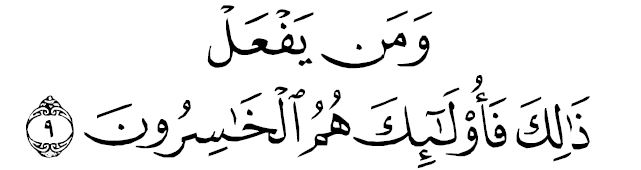 وَمَن يَفْعَلْ
ذَٰلِكَ فَأُو۟لَـٰٓئِكَ هُمُ ٱلْخَـٰسِرُونَ ٩